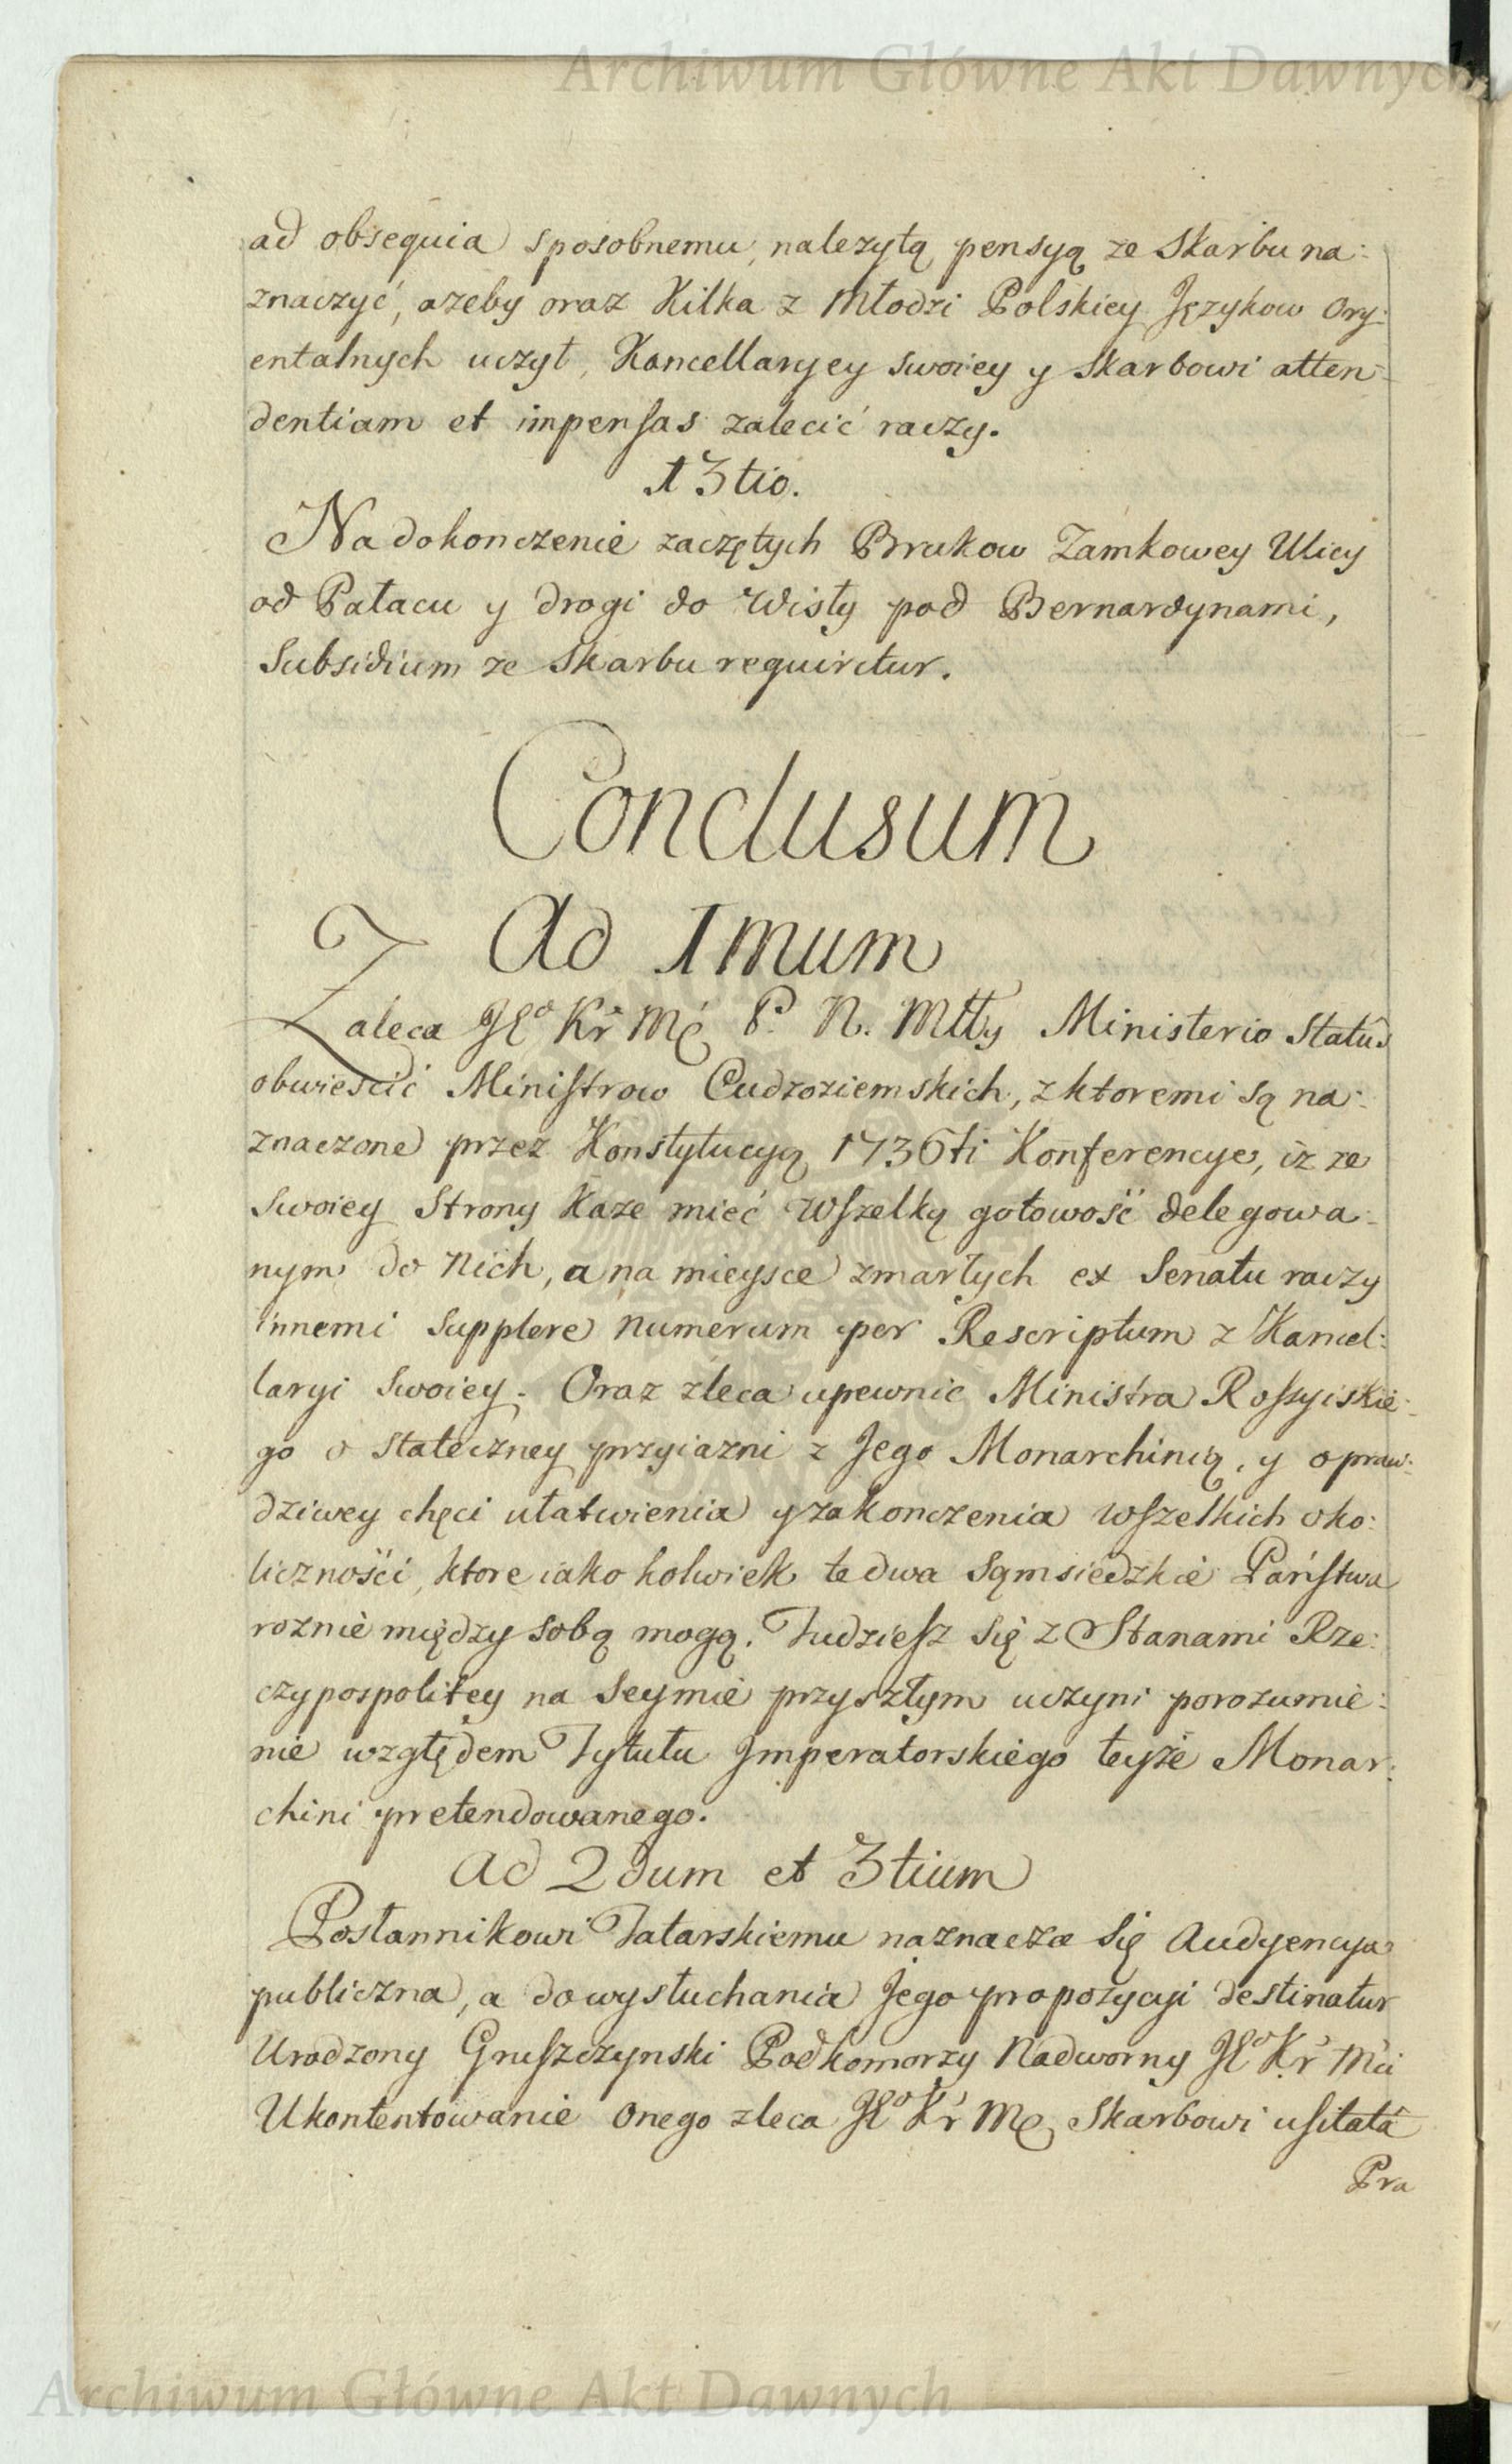 Archiwum Główne Akt Dawnych
ad obsequia sposobnemu, nalezytą pensyą ze Skarbu na:
znaczyć, azeby oraz Kilka z Młodzi Polskiey Językow Ory:
entalnych uczył, Kancellaryey swoiey y Skarbowi atten:
dentiam et impensas zalecić raczy.
13tio.
Na dokonczenie zaczętych Brukow Zamkowey Ulicy
od Pałacu y drogi do Wisły pod Bernardynami,
Subsidium ze Skarbu requiretur.
Conclusum
Ad 1mum
Zaleca JEo Kr Mć P. N. Mtty Ministerio Statûs
obwieścić Ministrow Cudzoziemskich, z ktoremi są na:
znaczone przez Konstytucyą 1736ti Konferencye, iż ze
swoiey Strony Kaze mieć Wszelką gotowość delegowa:
nym do Nich, a na mieysce zmarłych ex Senatu raczy
innemi supplere numerum per Rescriptum z Kancel:
laryi Swoiey. Oraz zleca upewnic Ministra Rossyiskie:
go o stateczney przyiazni z Jego Monarchinią, y o praw:
dziwey chęci ułatwienia y zakonczenia wszelkich oko:
licznośći, ktore iako kolwiek te dwa Sąmsiedzkie Państwa
roznie między sobą mogą. Tudziesz się z Stanami Rze:
czypospolitey na Seymie przyszłym uczyni porozumie:
nie względem Tytułu Jmperatorskiego teyże Monar:
chini pretendowanego.
Ad 2dum et 3tium
Posłannikowi Tatarskiemu naznacza się Audyencya
publiczna, a do wysłuchania Jego propozycyi destinatur
Urodzony Gruszczynski Podkomorzy Nadworny JEo Kr Mći
Ukontentowanie onego zleca JEo Kr Mć Skarbowi usitatâ
Pra
Archiwum Główne Akt Dawnych